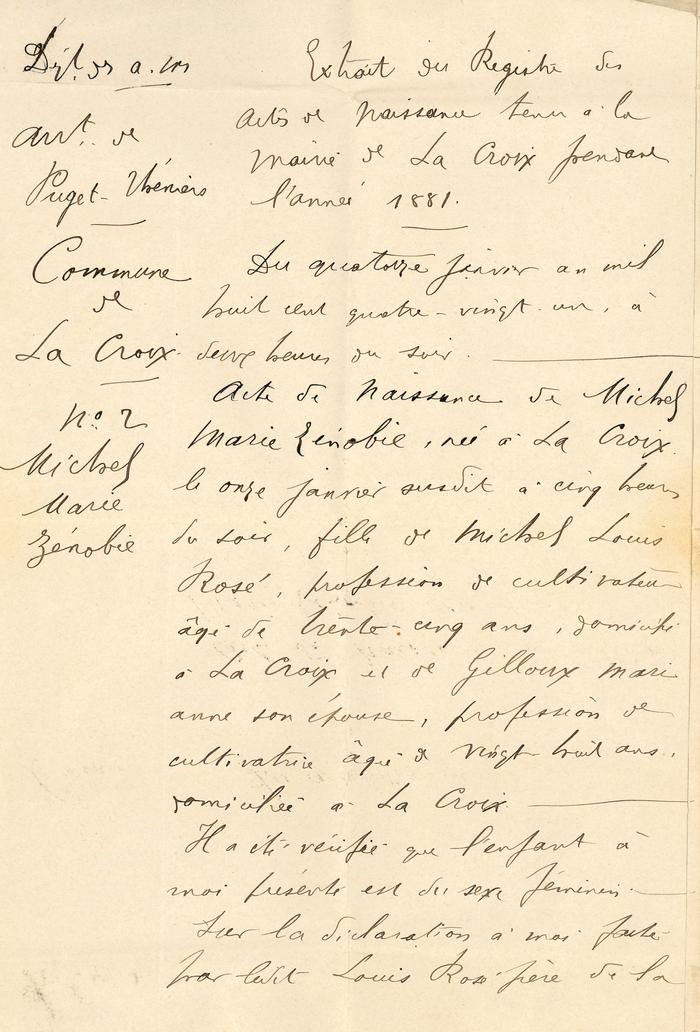 Dépt des a. ms
Arrt. de
Puget-Théniers
Commune
de
La Croix
No 2
Michel
Marie
Zénobie
Extrait du Registre des
actes de Naissance tenu à la
Mairie de La Croix pendant
l'année 1881.
Du quatorze janvier an mil
huit cent quatre-vingt-un, à
deux heures du soir.
Acte de Naissance de Michel
Marie Zénobie, née à La Croix
le onze janvier susdit à cinq heures
du soir, fille de Michel Louis
Rosé, profession de cultivateur
âgé de trente-cinq ans, domicilié
à La Croix et de Gilloux Marie
anne son épouse, profession de
cultivatrice âgée de vingt huit ans,
domiciliée à La Croix
Il a été vérifié que l'enfant à
moi présenté est du sexe féminin.
Sur la déclaration à moi faite
par ledit Louis Rosé père de la